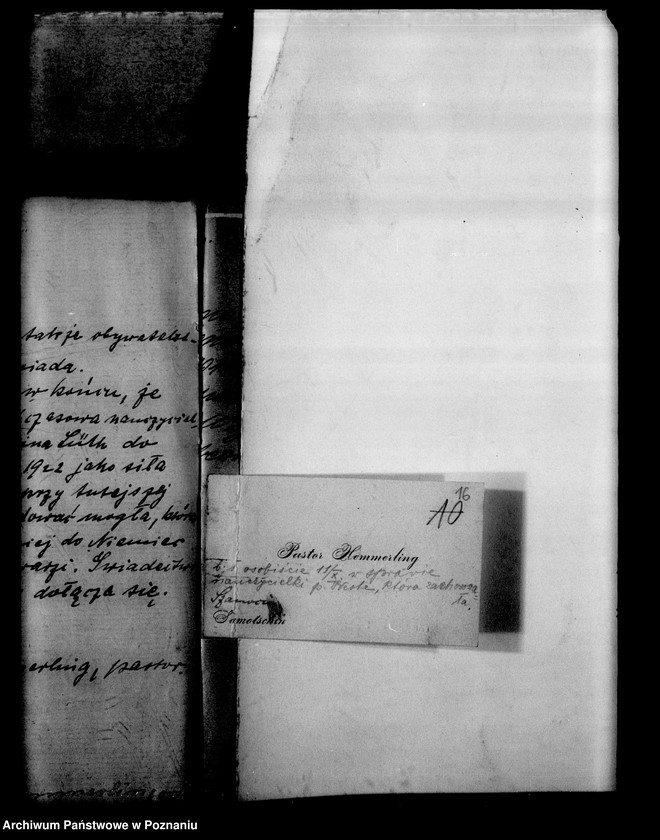 tatże obywatelst-
iada.
w końcu, że
czasowa nauczyciel
ina Lüth do
1922 jako siła
przy tutejszej
dować mogła, która
iej do Niemiec
Świadectwo
dołącza się.
erling, pastor.
16
10
Pastor Hemmerling
b. ż osobiście 11/X w sprawie
nauczycielki p. która zachorowa-
ła.
Szamocin
Samotschin
Archiwum Państwowe w Poznaniu